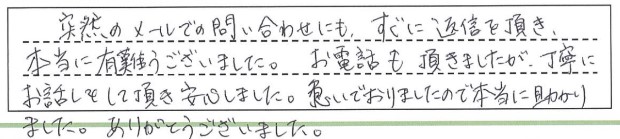 突然のメールでの問い合わせにも、すぐに返信を頂き、
本当に有難うございました。 お電話も頂きましたが、丁寧に
お話しもして頂き安心しました。急いでおりましたので本当に助かり
ました。ありがとうございました。